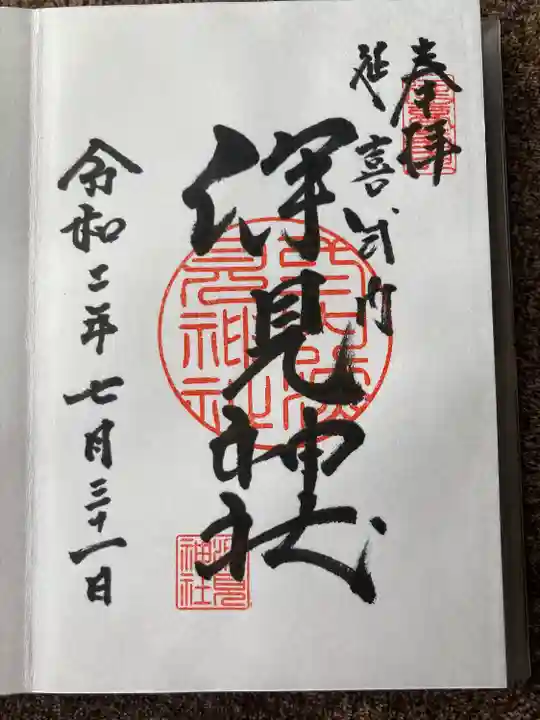 奉拝
延喜式内
深見神社
令和二年七月三十一日
深見
神社